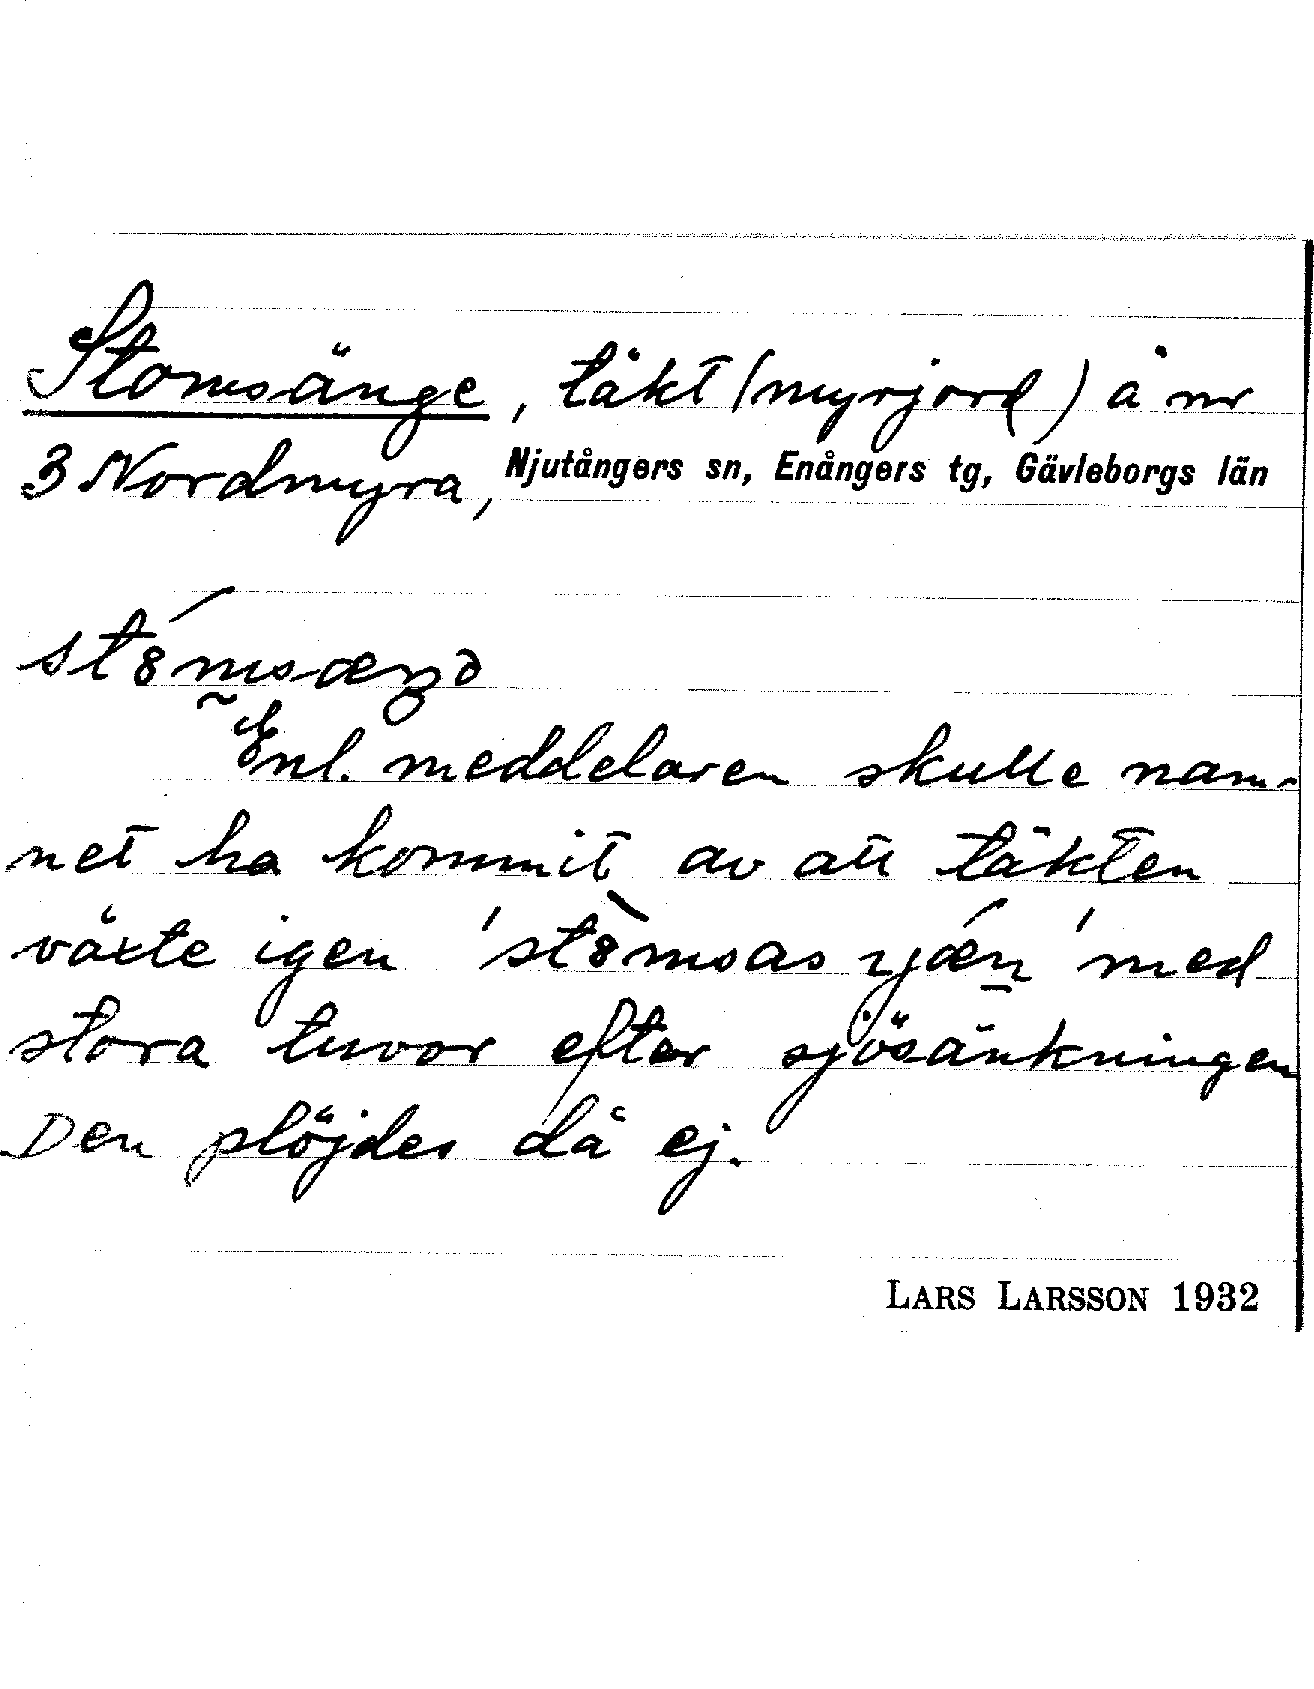 Stomsänge, täkt (myrjord) å nr
3 Nordmyra, Njutångers sn, Enångers tg, Gävleborgs län
Enl. meddelaren skulle nam-
net ha kommit av att täkten
växte igen med
stora tuvor efter sjösänkningen
Den plöjdes då ej.
LARS LARSSON 1932